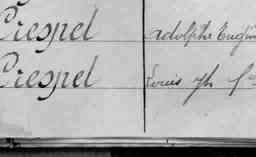 Crespel Adolphe Eugèn
Crespel Louis Jh